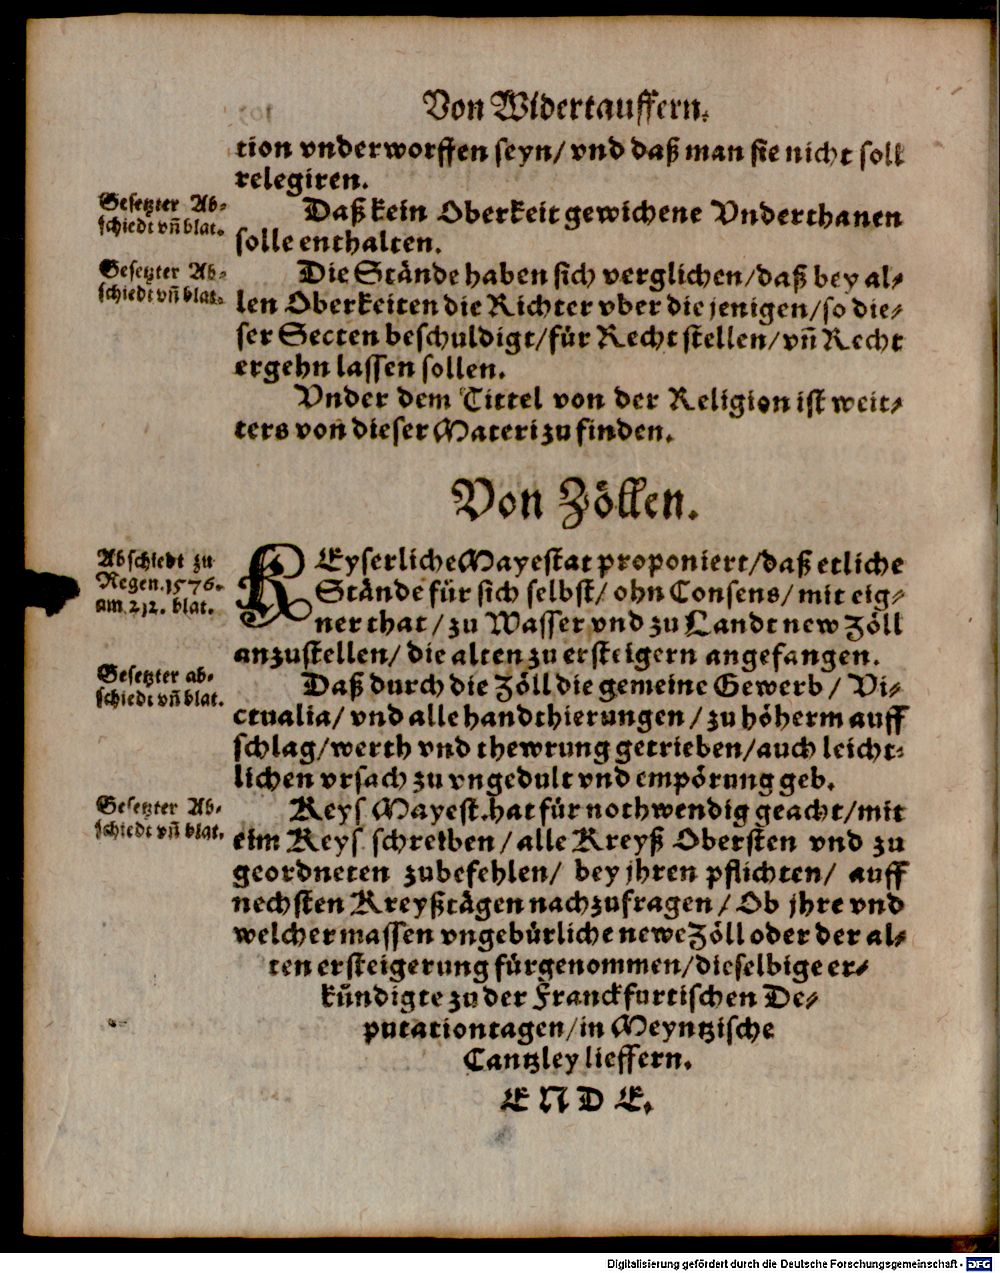 Von Widertauffern.
tion vnderworffen seyn/ vnd daß man sie nicht soll
relegiren.
Gesetzter Ab-
schiedt vñ blat.
Daß kein Oberkeit gewichene Vnderthanen
solle enthalten.
Gesetzter Ab-
schiedt vñ blat.
Die Stände haben sich verglichen/daß bey al-
len Oberkeiten die Richter vber die jenigen/so die-
ser Secten beschuldigt/für Recht stellen/vñ Recht
ergehn lassen sollen.
Vnder dem Tittel von der Religion ist weit-
ters von dieser Materi zu finden.
Von Zöllen.
Abschiedt zu
Regen.1576.
am 212. blat.
KEyserliche Mayestat proponiert/daß etliche
Stände für sich selbst/ ohn Consens/ mit eig-
ner that/ zu Wasser vnd zu Landt new Zöll
anzustellen/ die alten zu ersteigern angefangen.
Gesetzter ab-
schiedt vñ blat.
Daß durch die Zöll die gemeine Gewerb/ Vi-
ctualia/ vnd alle handthierungen/ zu höherm auff
schlag/werth vnd thewrung getrieben/auch leicht-
lichen vrsach zu vngedult vnd empörung geb.
Gesetzter Ab-
schiedt vñ blat.
Keys Mayest.hat für nothwendig geacht/mit
eim Keys schreiben/ alle Kreyß Obersten vnd zu
geordneten zubefehlen/ bey jhren pflichten/ auff
nechsten Kreyßtägen nachzufragen/ Ob jhre vnd
welcher massen vngebürliche newe Zöll oder der al-
ten ersteigerung fürgenommen/dieselbige er-
kündigte zu der Franckfurtischen De-
putationtagen/in Meyntzische
Cantzley lieffern.
E N D E.
Digitalisierung gefördert durch die Deutsche Forschungsgemeinschaft - DFG